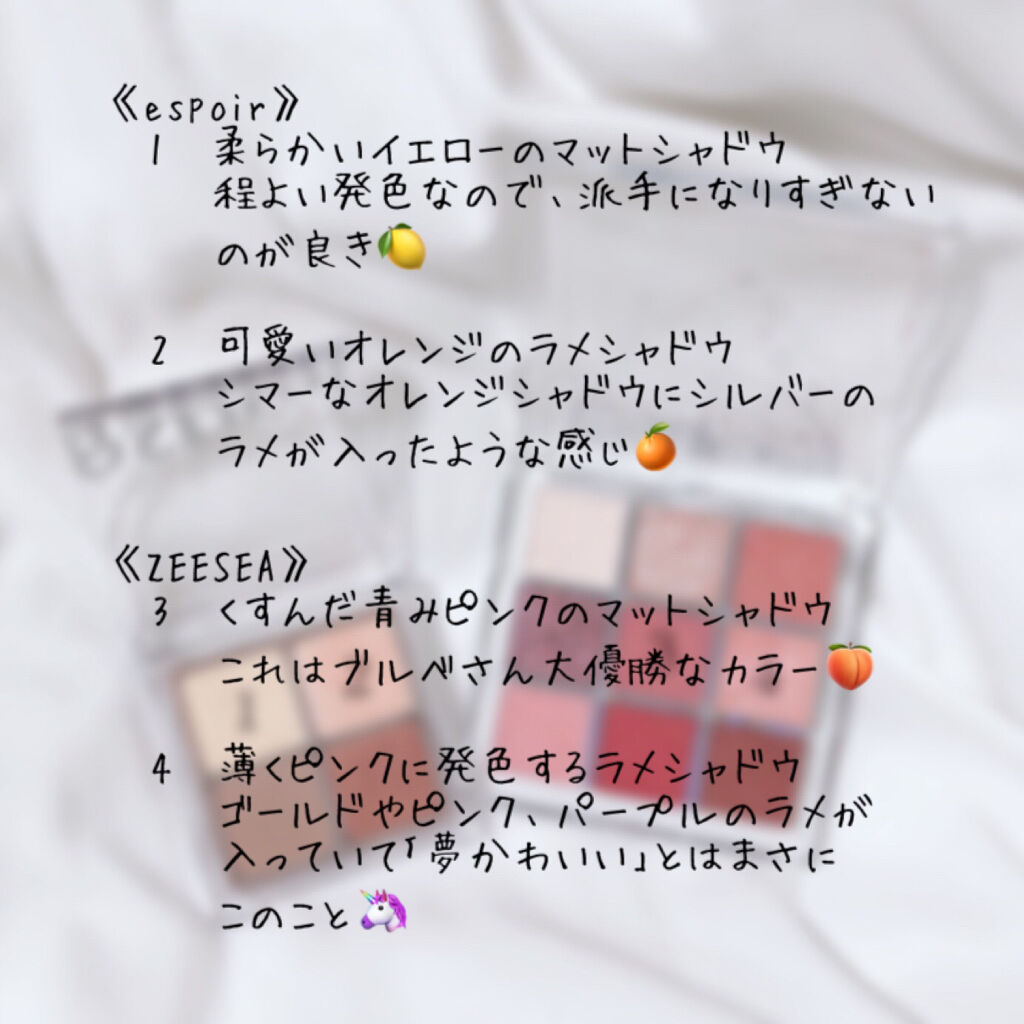 《espoir》
1 柔らかいイエローのマットシャドウ
程よい発色なので、派手になりすぎない
のが良き🍋
2 可愛いオレンジのラメシャドウ
シマーなオレンジシャドウにシルバーの
ラメが入ったような感じ🍊
《ZEESEA》
3 くすんだ青みピンクのマットシャドウ
これはブルベさん大優勝なカラー🍑
4 薄くピンクに発色するラメシャドウ
ゴールドやピンク、パープルのラメが
入っていて「夢かわいい」とはまさに
このこと🦄